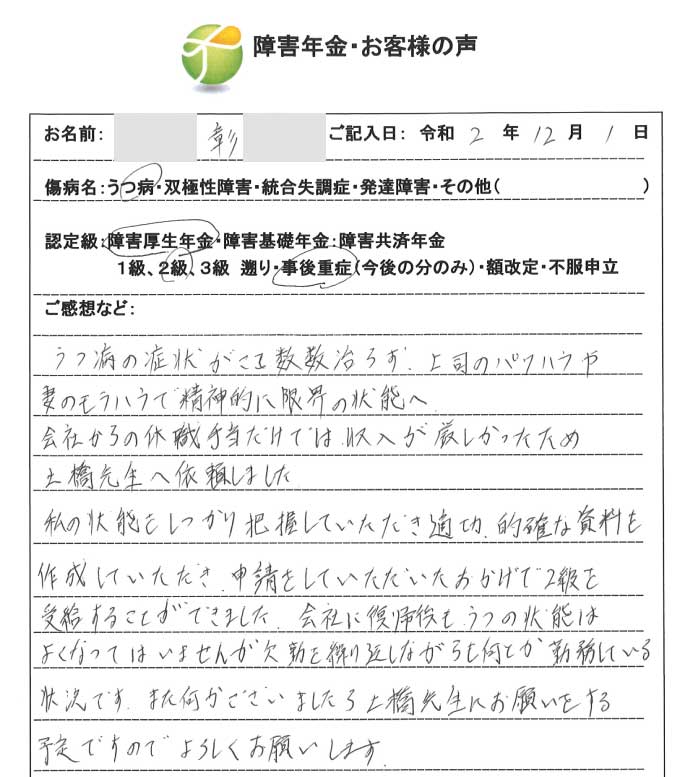 障害年金・お客様の声
お名前： 彰 ご記入日： 令和 2 年 12 月 1 日
傷病名：うつ病・双極性障害・統合失調症・発達障害・その他（ ）
認定級：障害厚生年金・障害基礎年金：障害共済年金
1級、2級、3級 遡り・事後重症（今後の分のみ）・額改定・不服申立
ご感想など：
うつ病の症状がここ数数治らず、上司のパワハラや
妻のモラハラで精神的に限界の状態へ
会社からの休職手当だけでは、収入が厳しかったため
土橋先生へ依頼しました
私の状態をしっかり把握していただき適切、的確な資料を
作成していただき、申請をしていただいたおかげで2級を
受給することができました。会社に復帰後も、うつの状態は
よくなってはいませんが欠勤を繰り返しながらも何とか勤務している
状況です。また何かございましたら土橋先生にお願いをする
予定ですのでよろしくお願いします。